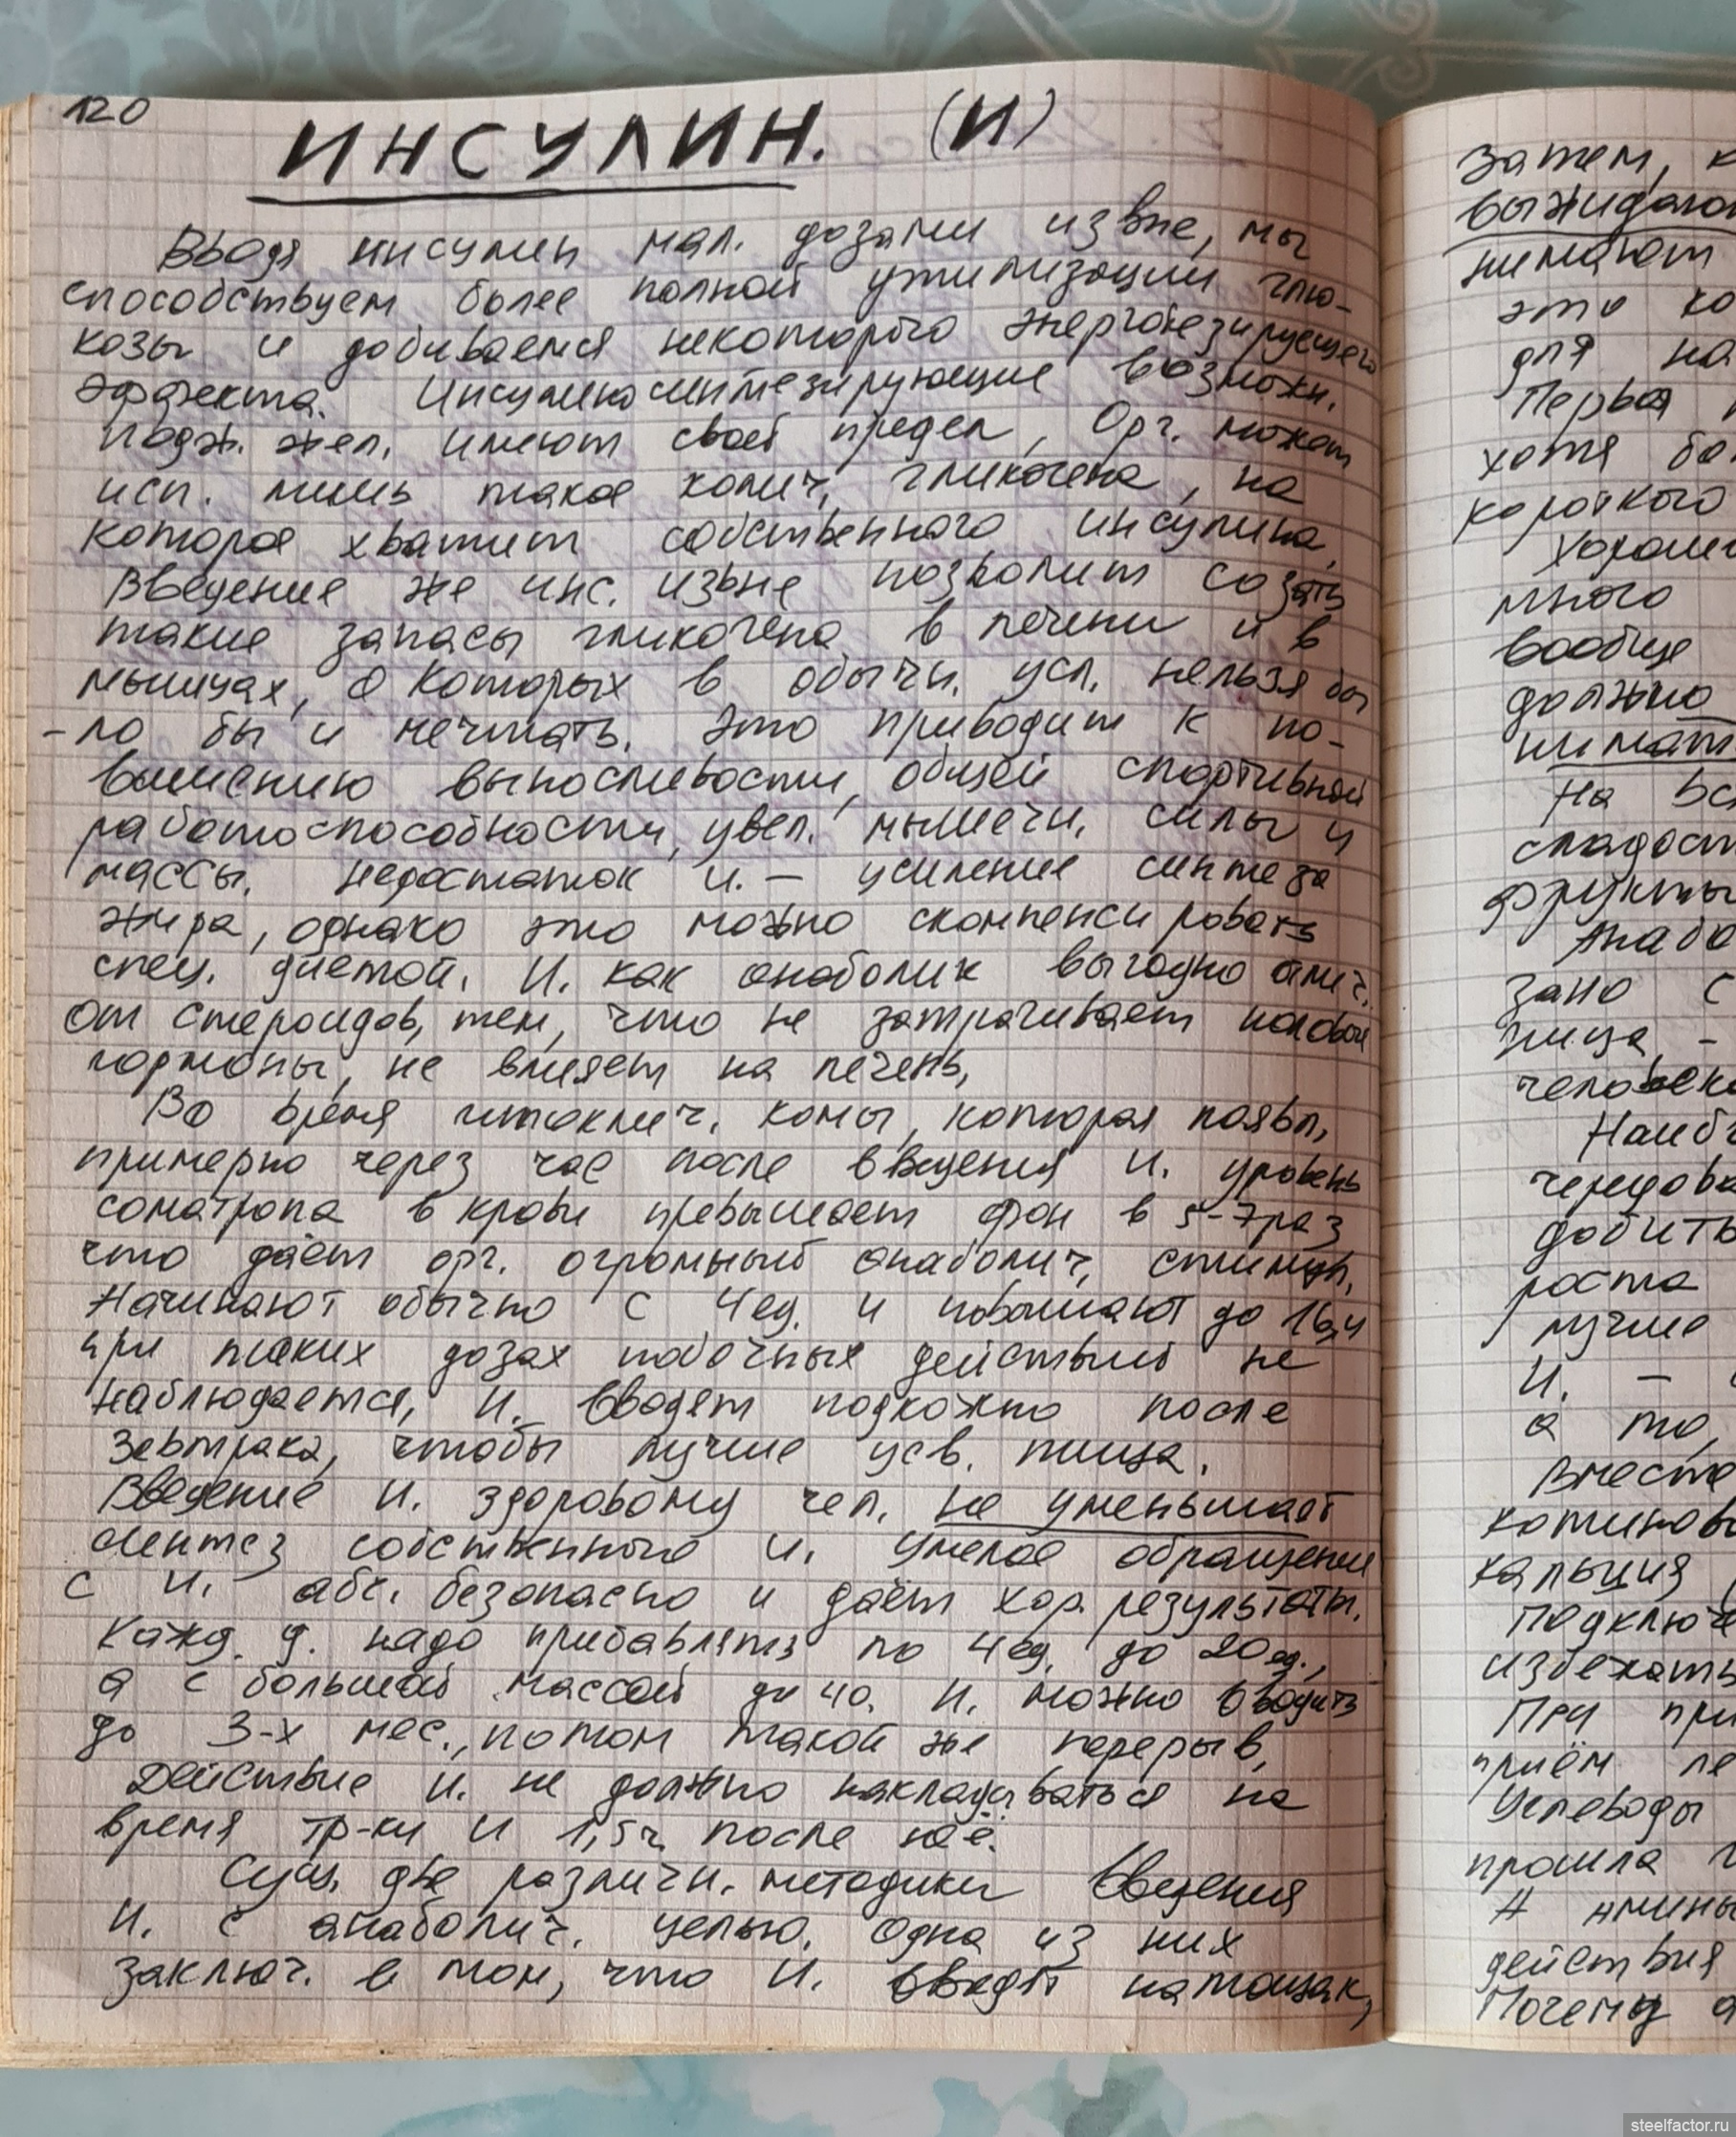 120
ИНСУЛИН. (И)
Вводя инсулин мал. дозами извне, мы
способствуем более полной утилизации глю-
козы и добиваемся некоторого
эффекта. Инсулиносинтезирующие возможн.
подж. жел. имеют свой предел, Орг. может
исп. лишь такое колич. гликогена, на
которое хватит собственного инсулина,
Введение же инс. извне позволит создать
такие запасы гликогена в печени и в
мышцах, о которых в обычн. усл. нельзя бы
-ло бы и мечтать. Это приводит к по-
вышению выносливости, общей спортивной
работоспособности, увел. мышечн. силы и
массы. Недостаток и. — усиление синтеза
жира, однако это можно скомпенсировать
спец. диетой. И. как анаболик выгодно отлич.
от стероидов, тем, что не затрагивает половые
гормоны, не влияет на печень,
Во время гипоклич. комы, которая появл,
примерно через час после введения И. уровень
соматропа в крови превышает фон в 5-7раз
что даёт орг. огромный анаболич. стимул.
Начинают обычно с 4ед. и повышают до 16,
при таких дозах побочных действий не
наблюдается, И. вводят подкожно после
завтрака, чтобы лучше усв. пища.
Введение И. здоровому чел. не уменьшает
синтез собственного И. Умелое обращение
с И. абс. безопасно и даёт хор. результаты.
Кажд. д. надо прибавлять по 4ед. до 20ед.,
а с большой массой до 40. И. можно вводить
до 3-х мес., потом такой же перерыв,
Действие И. не должно накладываться на
время тр-ки и 1,5ч. после неё.
Сущ. две различн. методики введения
И. с анаболич. целью. Одна из них
заключ. в том, что И. вводят натощак,
затем,
выжидают
нимают
это
для на
Первая
хотя
короткого
много
вообще
должно
нимат
На
сладост
фрукты
Анабо
зано с
пища -
человек
Наиб
чередова
добить
роста
лучше
И. -
а то,
Вместе
кальция
Подключе
избежать
При при
приём ле
Углеводы
прошла
Амины
действия
Почему
steelfactor.ru